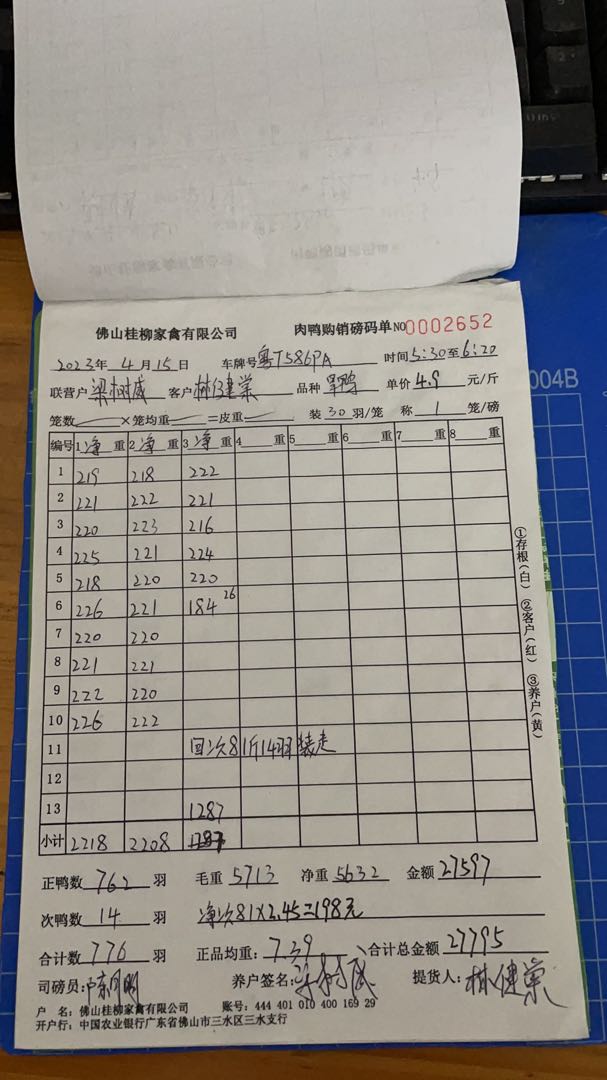 佛山桂柳家禽有限公司 肉鸭购销磅码单 NO 0002652
2023年 4月15日 车牌号 粤T586PA 时间 5:30至6:20
联营户 梁树威 客户 林健荣 品种 旱鸭 单价 4.9 元/斤
笼数 ×笼均重 =皮重 装 30 羽/笼 称 1 笼/磅
编号 1 净 重 2 净 重 3 净 重 4 重 5 重 6 重 7 重 8 重
1 219 218 222
2 221 222 221
3 220 223 216
4 225 221 224
5 218 220 220
6 226 221 184 26
7 220 220
8 221 221
9 222 220
10 226 222
11 回次81斤14羽装走
12
13 1287
小计 2218 2208
正鸭数 762 羽 毛重 5713 净重 5632 金额 27597
次鸭数 14 羽 净次81×2.45=198元
合计数 776 羽 正品均重: 7.39 合计总金额 27795
司磅员: 养户签名: 梁树威 提货人: 林健荣
户 名: 佛山桂柳家禽有限公司 账号: 444 401 010 400 169 29
开户行: 中国农业银行广东省佛山市三水区三水支行
①存根(白) ②客户(红) ③养户(黄)
004B